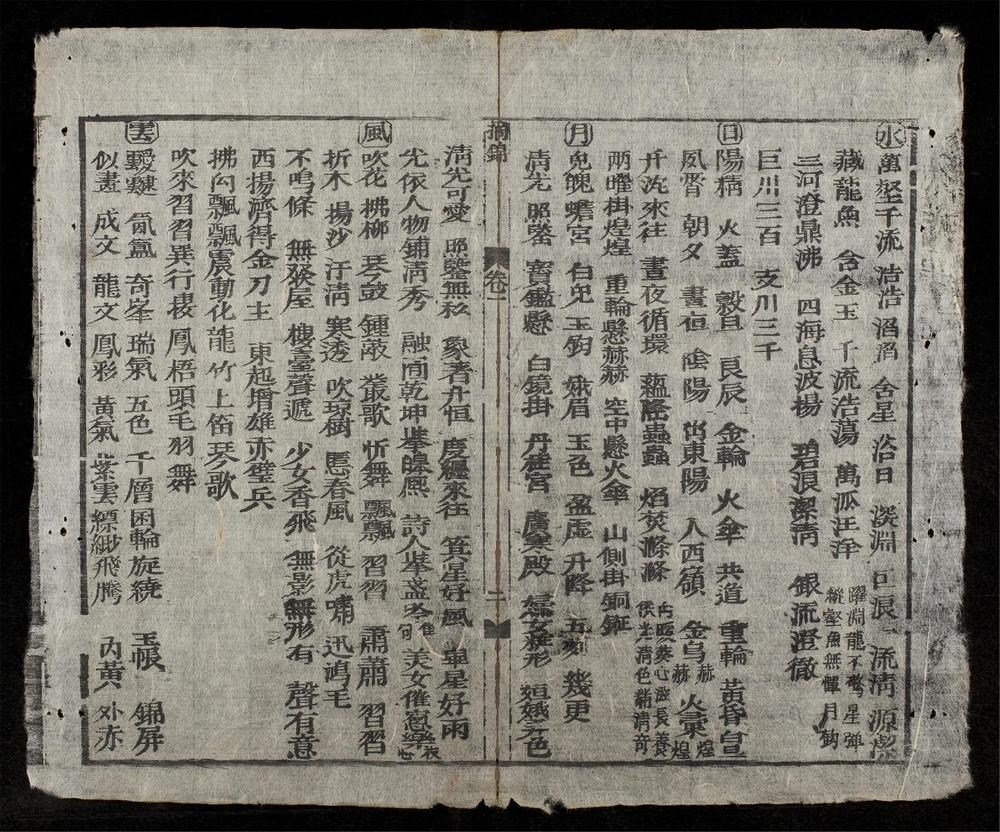 水 萬壑千流 浩浩滔滔 含星浴日 深淵巨浪 流清源潔
藏龍魚 含金玉 千流浩蕩 萬派汪洋 躍淵龍不驚星彈 縱壑魚無憚月鈎
三河澄鼎沸 四海息波揚 碧浪潔清 銀流澄徹
巨川三百 支川三千
日 陽精 火蓋 穀旦 良辰 金輪 火傘 共道 重輪 黃昏
夙宵 朝夕 晝夜 陰陽 出東陽 入西嶺 金烏赫赫 火棗煌煌
來往 晝夜循環 蘊隆蟲蟲 焰焚滌滌
兩曜掛煌煌 重輪懸赫赫 空中懸火傘 山側掛銅鉦
月 兔魄 蟾宮 白兔 玉鈎 娥眉 玉色 盈虛 升降 五刻 幾更
清光 照鑒 寶鑑懸 白鏡掛 丹桂宮 廣寒殿 姮娥弄色
摘錦 卷一 二
清光可愛 照鑒無私 象著升恒 度纏來往 箕星好風 畢星好雨
光依人物鋪清秀 融間乾坤
風 吹花 拂柳 琴鼓 鍾敲 叢歌 忻舞 飄飄 習習 肅肅 習習
折木 揚沙 汗清 寒透 吹琼樹 春風 從虎嘯 迅鴻毛
不鳴條 無發屋 樓臺聲遞 少女香飛 無影無形有 聲有意
西揚濟得金刀主 東起增雄赤壁兵
拂勾飄飄震動化龍竹上笛琴歌
吹來習習異行棲鳳梧頭毛羽舞
雲 靉靆 氤氳 奇峯 瑞氣 五色 千層 囷輪旋繞 玉帳 錦屏
似畫 成文 龍文 鳳彩 黃氣 紫雲 縹緲飛騰 內黃 外赤